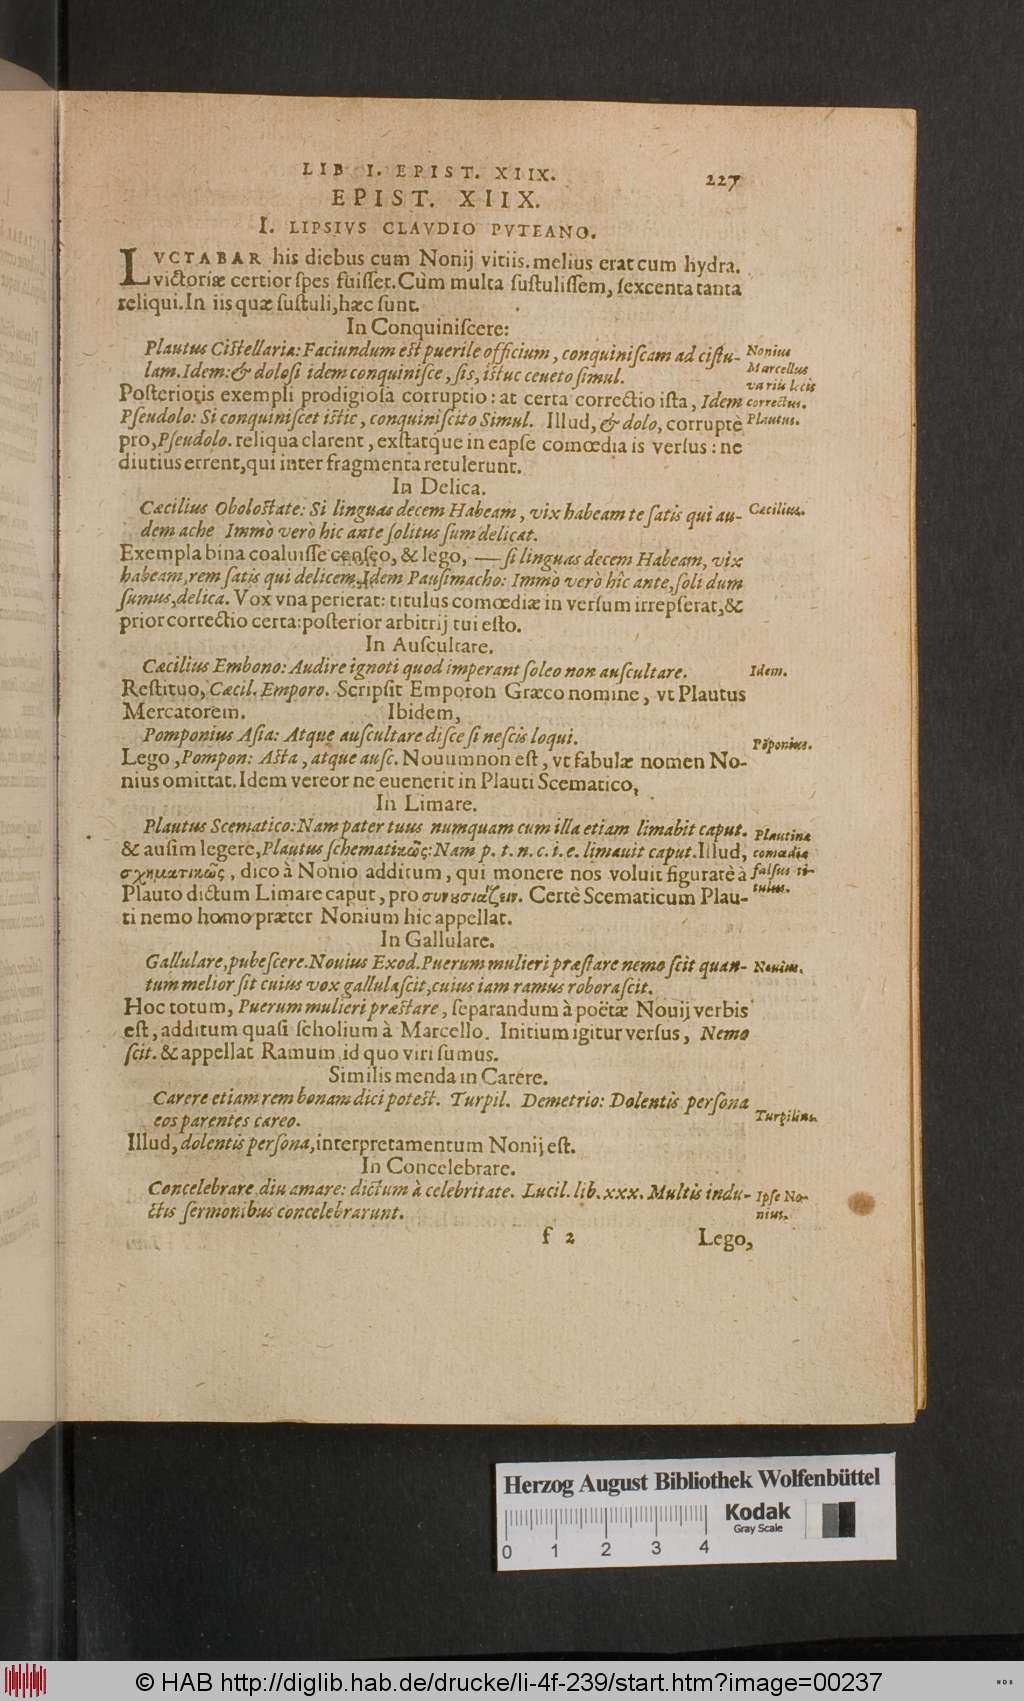 LIB I. EPIST. XIIX. 227
EPIST. XIIX.
I. LIPSIVS CLAVDIO PVTEANO.
LVCTABAR his diebus cum Nonij vitiis. melius erat cum hydra.
victoriæ certior ſpes fuiſſet. Cùm multa ſuſtuliſſem, ſexcenta tanta
reliqui. In iis quæ ſuſtuli, hæc ſunt.
In Conquiniſcere:
Plautus Ciſtellaria: Faciundum eſt puerile officium, conquiniſcam ad ciſtu-
lam. Idem: & doloſi idem conquiniſce, ſis, iſtuc ceueto ſimul.
Nonius
Marcellus
variis locis
correctus.
Plautus.
Poſterioris exempli prodigioſa corruptio: at certa correctio iſta, Idem
Pſeudolo: Si conquiniſcet iſtic, conquiniſcito Simul. Illud, & dolo, corruptè
pro, Pſeudolo. reliqua clarent, exſtatque in eapſe comœdia is verſus: ne
diutius errent, qui inter fragmenta retulerunt.
In Delica.
Cæcilius Oboloſtate: Si linguas decem Habeam, vix habeam te ſatis qui au-
dem ache Immò verò hic ante ſolitus ſum delicat.
Cæcilius.
Exempla bina coaluiſſe cenſeo, & lego, — ſi linguas decem Habeam, vix
habeam, rem ſatis qui delicem. Idem Pauſimacho: Immò verò hîc ante, ſoli dum
ſumus, delica. Vox vna perierat: titulus comœdiæ in verſum irrepſerat, &
prior correctio certa: poſterior arbitrij tui eſto.
In Auſcultare.
Cæcilius Embono: Audire ignoti quod imperant ſoleo non auſcultare.
Idem.
Reſtituo, Cæcil. Emporo. Scripſit Emporon Græco nomine, vt Plautus
Mercatorem. Ibidem,
Pomponius Aſia: Atque auſcultare diſce ſi neſcis loqui.
Pōponius.
Lego, Pompon: Aſta, atque auſc. Nouum non eſt, vt fabulæ nomen No-
nius omittat. Idem vereor ne euenerit in Plauti Scematico,
In Limare.
Plautus Scematico: Nam pater tuus numquam cum illa etiam limabit caput.
& auſim legere, Plautus ſchematικῶς: Nam p. t. n. c. i. e. limauit caput. Illud,
σχηματικῶς, dico à Nonio additum, qui monere nos voluit figuratè à
Plauto dictum Limare caput, pro συνουσιάζειν. Certè Scematicum Plau-
ti nemo homo præter Nonium hic appellat.
Plautina
comœdia
falſus ti-
tulus.
In Gallulare.
Gallulare, pubeſcere. Nouius Exod. Puerum mulieri præſtare nemo ſcit quan-
tum melior ſit cuius vox gallulaſcit, cuius iam ramus roboraſcit.
Nouius.
Hoc totum, Puerum mulieri præſtare, ſeparandum à poëtæ Nouij verbis
eſt, additum quaſi ſcholium à Marcello. Initium igitur verſus, Nemo
ſcit. & appellat Ramum id quo viri ſumus.
Similis menda in Carere.
Carere etiam rem bonam dici poteſt. Turpil. Demetrio: Dolentis perſona
eos parentes careo.
Turpilius.
Illud, dolentis perſona, interpretamentum Nonij eſt.
In Concelebrare.
Concelebrare diu amare: dictum à celebritate. Lucil. lib. xxx. Multis indu-
ctis ſermonibus concelebrarunt.
Ipſe No-
nius.
f 2 Lego,
Herzog August Bibliothek Wolfenbüttel
Kodak
Gray Scale
0 1 2 3 4
© HAB http://diglib.hab.de/drucke/li-4f-239/start.htm?image=00237